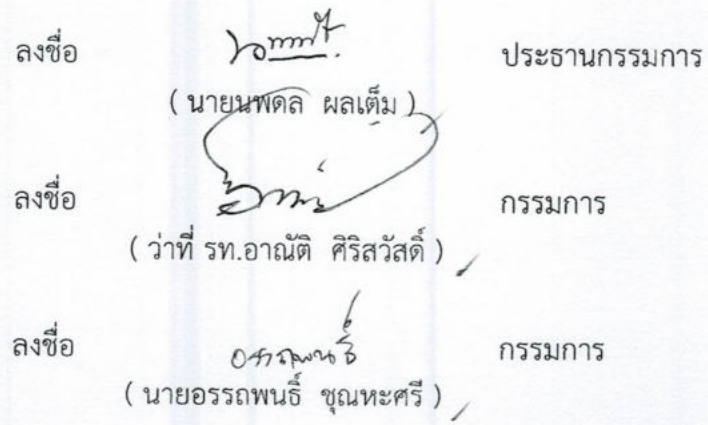 ลงชื่อ ประธานกรรมการ
( นายนพดล ผลเต็ม )
ลงชื่อ กรรมการ
( ว่าที่ รท.อาณัติ ศิริสวัสดิ์ )
ลงชื่อ อรรถพนธิ์ กรรมการ
( นายอรรถพนธิ์ ชุณหะศรี )